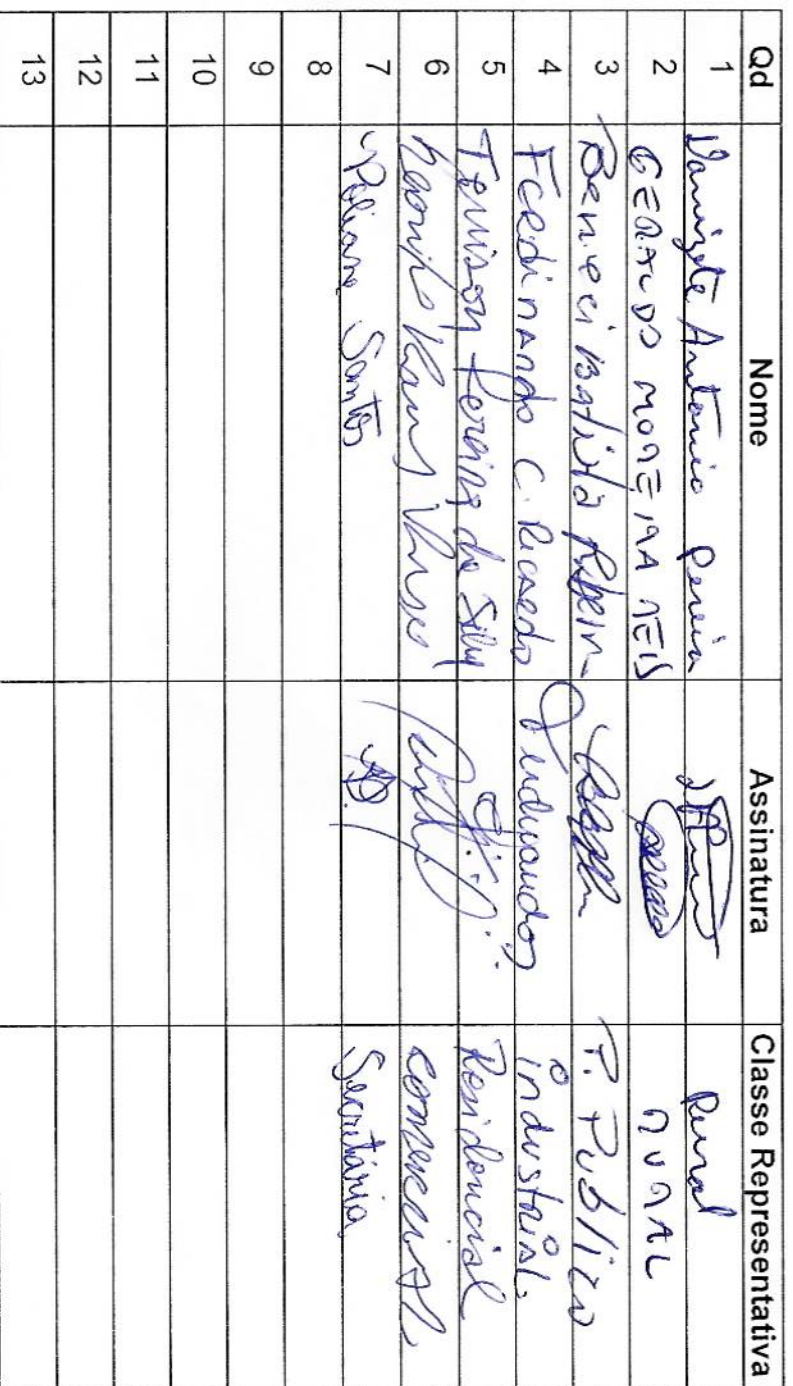 Qd Nome Assinatura Classe Representativa
1 Antonio Pereira Rural
2 GERALDO MOREIRA REIS RURAL
3 Batista Ribeiro P. Publico
4 Ferdinando C. Ricardo Ferdinando industrial.
5 Ferreira da Silva Residencial
6 comercial
7 Poliana Santos Secretária
8
9
10
11
12
13